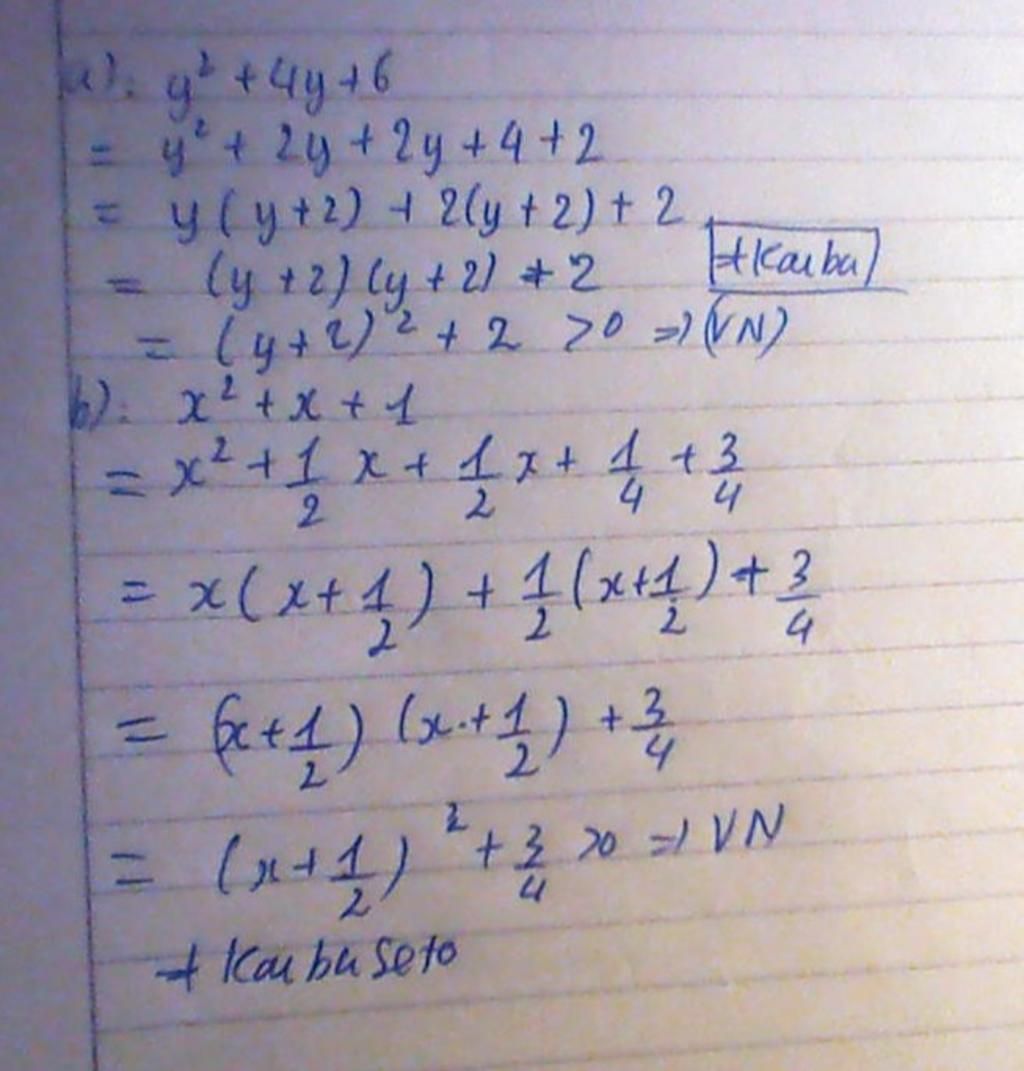 a). y² + 4y + 6
= y² + 2y + 2y + 4 + 2
= y(y+2) + 2(y+2) + 2
= (y+2)(y+2) + 2
+Kaubu
= (y+2)² + 2 >0 => (VN)
b). x² + x + 1
= x² + 1/2 x + 1/2 x + 1/4 + 3/4
= x(x+1/2) + 1/2(x+1/2) + 3/4
= (x+1/2)(x+1/2) + 3/4
= (x+1/2)² + 3/4 >0 => VN